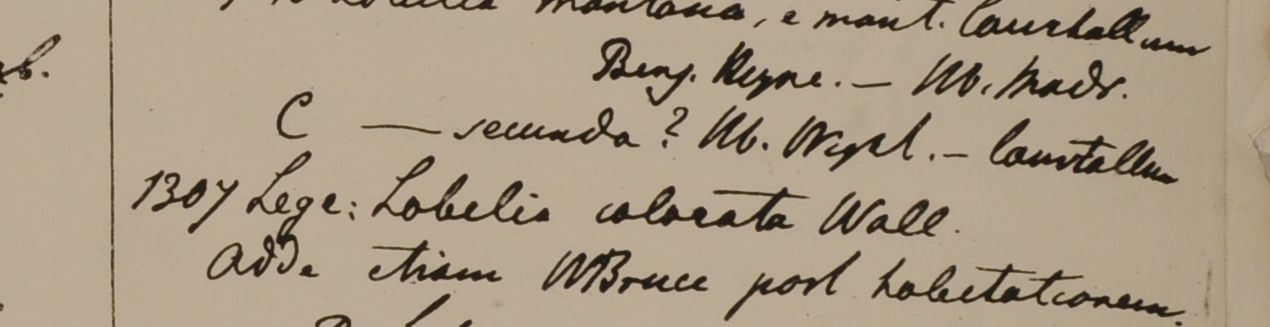 Lobelia montana, e mont. Courtallum
Benj. Heyne. — Hb. Madr.
C — secunda? Hb. Wight. — Courtallum
1307 Lege: Lobelia colorata Wall.
Adde etiam WBruce post habitationem.